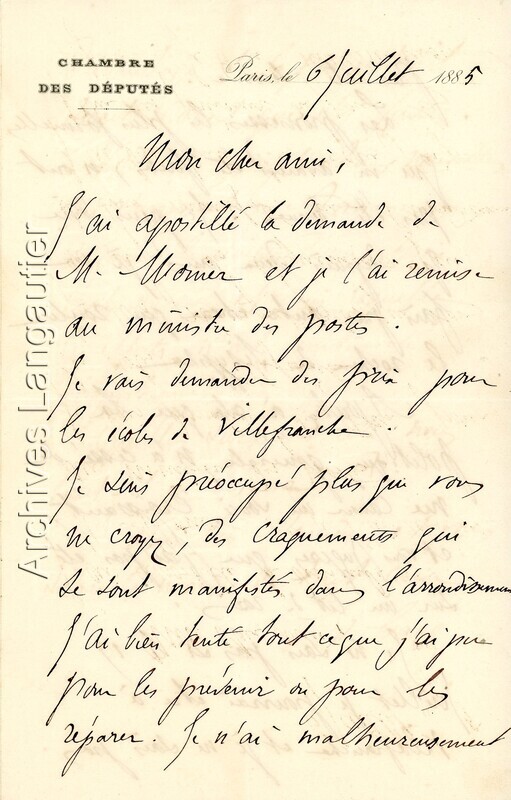 CHAMBRE
DES DÉPUTÉS
Paris, le 6 Juillet 1885
Mon cher ami,
J'ai apostillé la demande de
M. Monier et je l'ai remise
au ministre des postes.
Je vais demander des prix pour
les écoles de Villefranche.
Je suis préoccupé plus que vous
ne croyez, des craquements qui
se sont manifestés dans l'arrondissement
J'ai bien tenté tout ce que j'ai pu
pour les prévenir ou pour les
réparer. Je n'ai malheureusement
Archives Langautier